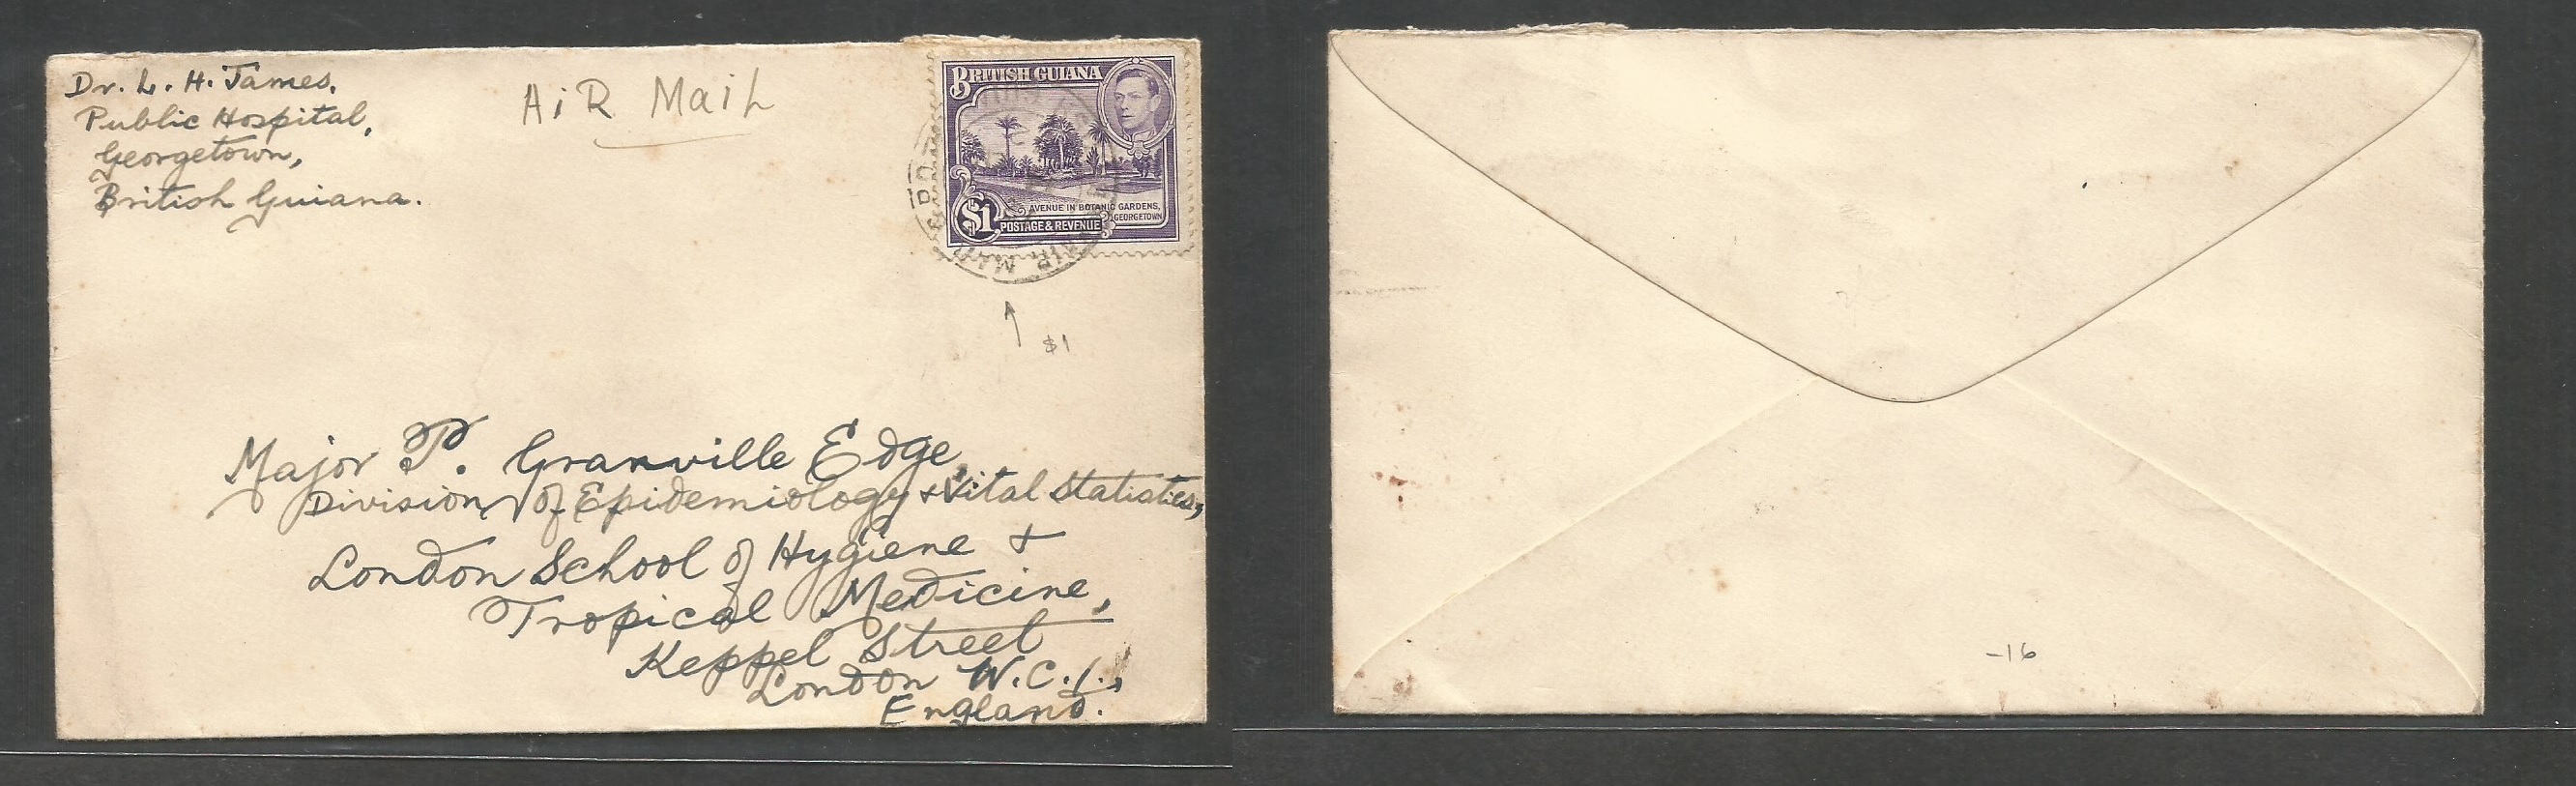 Dr. L. H. James,
Public Hospital,
Georgetown,
British Guiana.
AiR MaiL
BRITISH GUIANA
AVENUE IN BOTANIC GARDENS,
GEORGETOWN
$1
POSTAGE & REVENUE
AIR MAIL
$1
Major P. Granville Edge,
Division of Epidemiology & Vital Statistics,
London School of Hygiene &
Tropical Medicine,
Keppel Street
London W.C.1.,
England.
-16